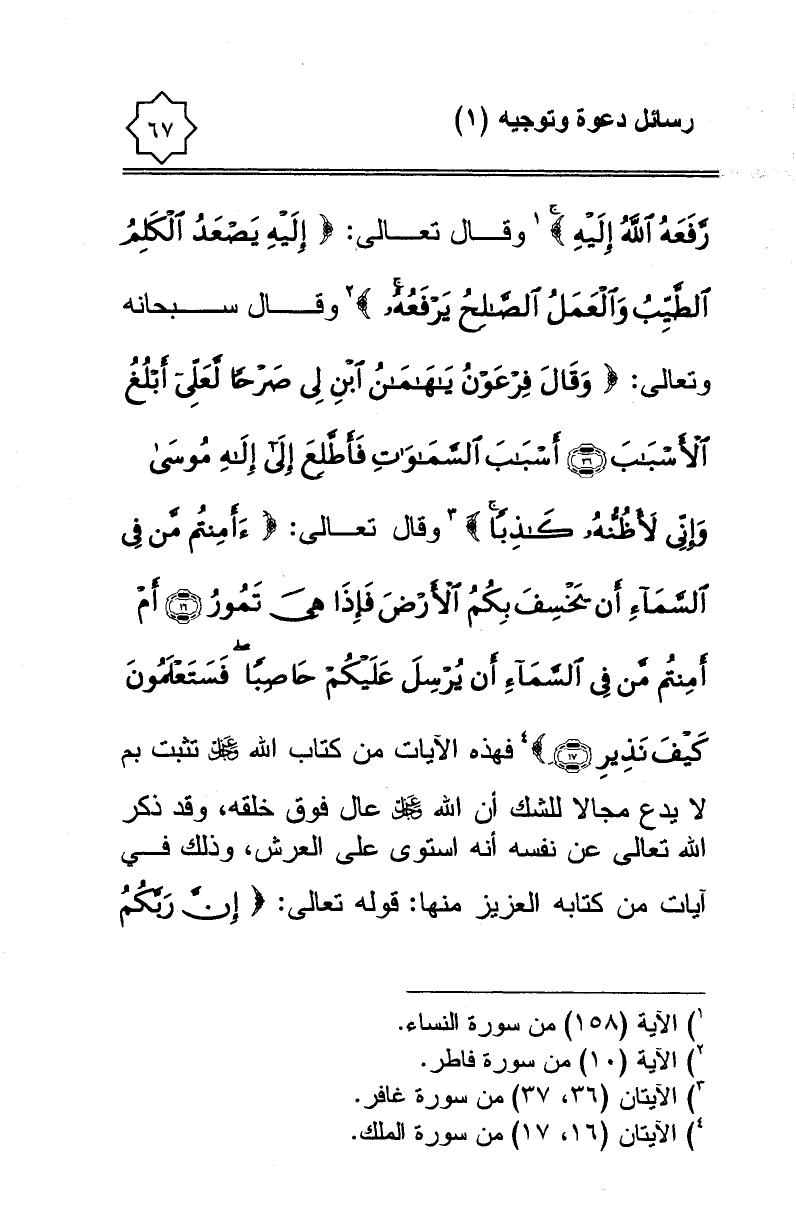 رسائل دعوة وتوجيه (١)
٦٧
رَّفَعَهُ ٱللَّهُ إِلَيْهِ ۚ ﴾١ وقـــال تعـــالى: ﴿ إِلَيْهِ يَصْعَدُ ٱلْكَلِمُ
ٱلطَّيِّبُ وَٱلْعَمَلُ ٱلصَّـٰلِحُ يَرْفَعُهُۥ ۚ ﴾٢ وقـــال ســـبحانه
وتعالى: ﴿ وَقَالَ فِرْعَوْنُ يَـٰهَـٰمَـٰنُ ٱبْنِ لِى صَرْحًا لَّعَلِّىٓ أَبْلُغُ
ٱلْأَسْبَـٰبَ ٣٦ أَسْبَـٰبَ ٱلسَّمَـٰوَٰتِ فَأَطَّلِعَ إِلَىٰٓ إِلَـٰهِ مُوسَىٰ
وَإِنِّى لَأَظُنُّهُۥ كَـٰذِبًا ۚ ﴾٣ وقال تعـــالى: ﴿ ءَأَمِنتُم مَّن فِى
ٱلسَّمَآءِ أَن يَخْسِفَ بِكُمُ ٱلْأَرْضَ فَإِذَا هِىَ تَمُورُ ١٦ أَمْ
أَمِنتُم مَّن فِى ٱلسَّمَآءِ أَن يُرْسِلَ عَلَيْكُمْ حَاصِبًا ۖ فَسَتَعْلَمُونَ
كَيْفَ نَذِيرِ ١٧ ﴾٤ فهذه الآيات من كتاب الله عز وجل تثبت بم
لا يدع مجالا للشك أن الله عز وجل عال فوق خلقه، وقد ذكر
الله تعالى عن نفسه أنه استوى على العرش، وذلك فـــي
آيات من كتابه العزيز منها: قوله تعالى: ﴿ إِنَّ رَبَّكُمُ
١) الآية (١٥٨) من سورة النساء.
٢) الآية (١٠) من سورة فاطر.
٣) الآيتان (٣٦، ٣٧) من سورة غافر.
٤) الآيتان (١٦، ١٧) من سورة الملك.